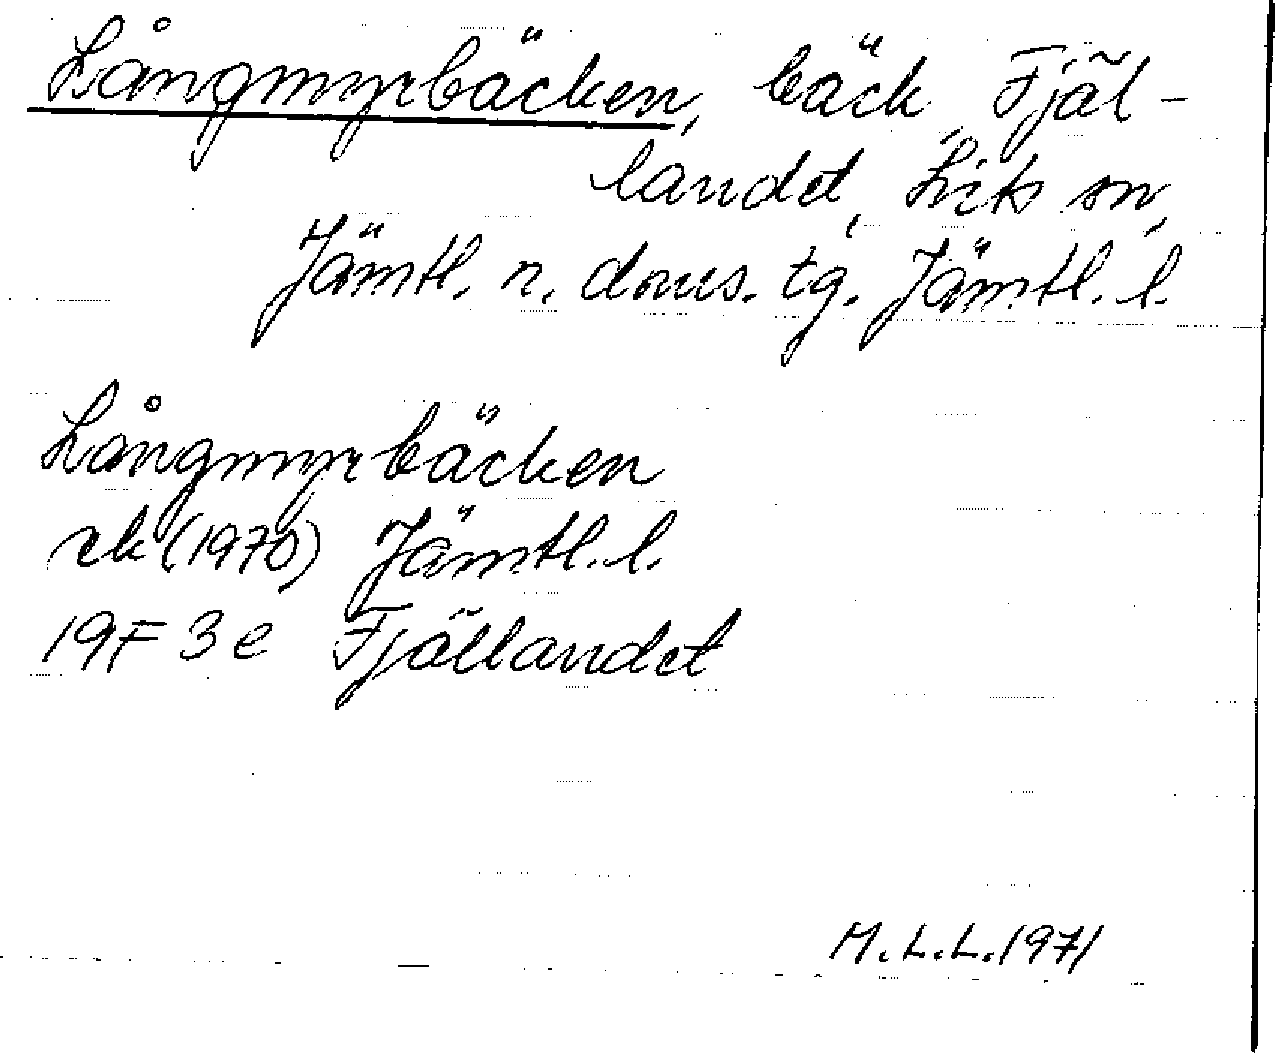 Långmyrbäcken, bäck, Fjäl-
landet, Lits sn,
Jämtl. n. doms. tg. Jämtl. l.
Långmyrbäcken
rek (1970) Jämtl. l.
19F 3e Fjällandet
M.L.L. 1971